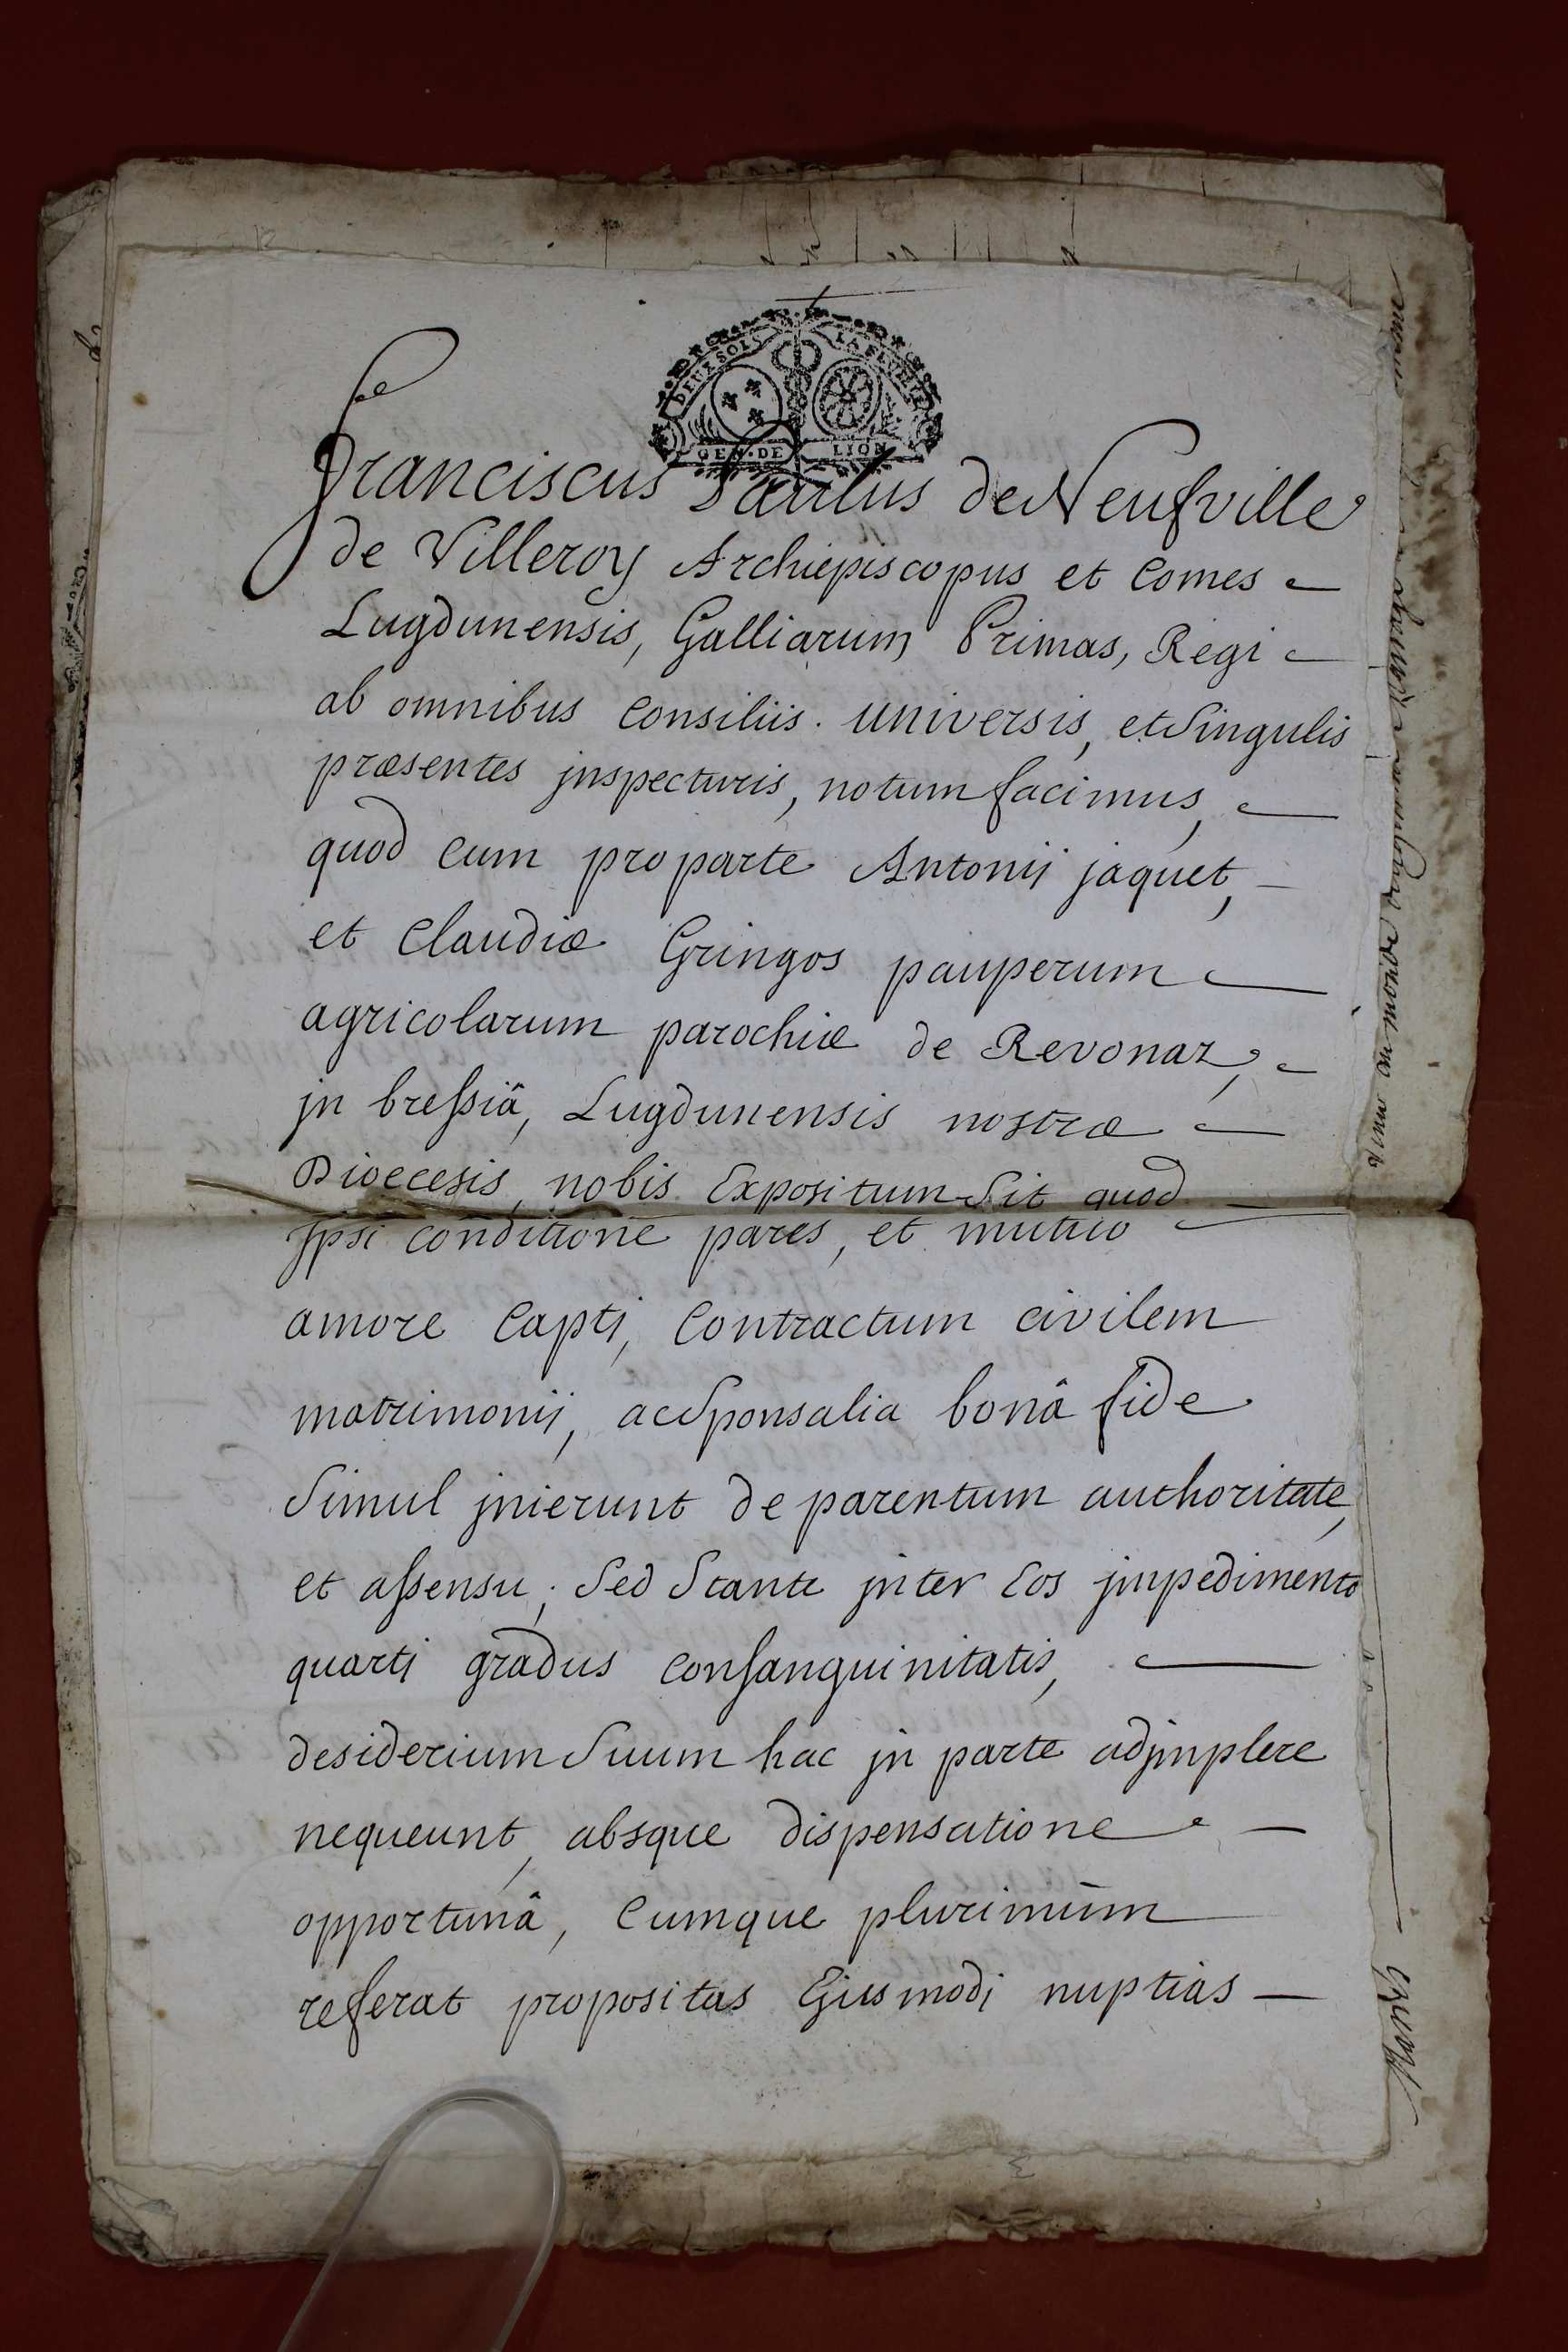 DEUX SOLS LA FEUILLE
GEN · DE LION
Franciscus Paulus de Neufville
de Villeroy Archiepiscopus et Comes
Lugdunensis, Galliarum Primas, Regi
ab omnibus Consiliis. Universis, et Singulis
præsentes jnspecturis, notum facimus,
quod cum pro parte Antonij jaquet,
et Claudiæ Gringos pauperum
agricolarum parochiæ de Revonaz,
jn bressiâ, Lugdunensis nostræ
Dioecesis, nobis Expositum Sit quod
Jpsi conditione pares, et mutuo
amore Capti, Contractum civilem
matrimonij, ac Sponsalia bonâ fide
Simul jnierunt de parentum authoritate,
et assensu, Sed Stante jnter Eos jmpedimento
quarti gradus consanguinitatis,
desiderium Suum hac jn parte adjmplere
nequeunt, absque dispensatione
opportunâ, Cumque plurimùm
referat propositas Ejusmodi nuptias